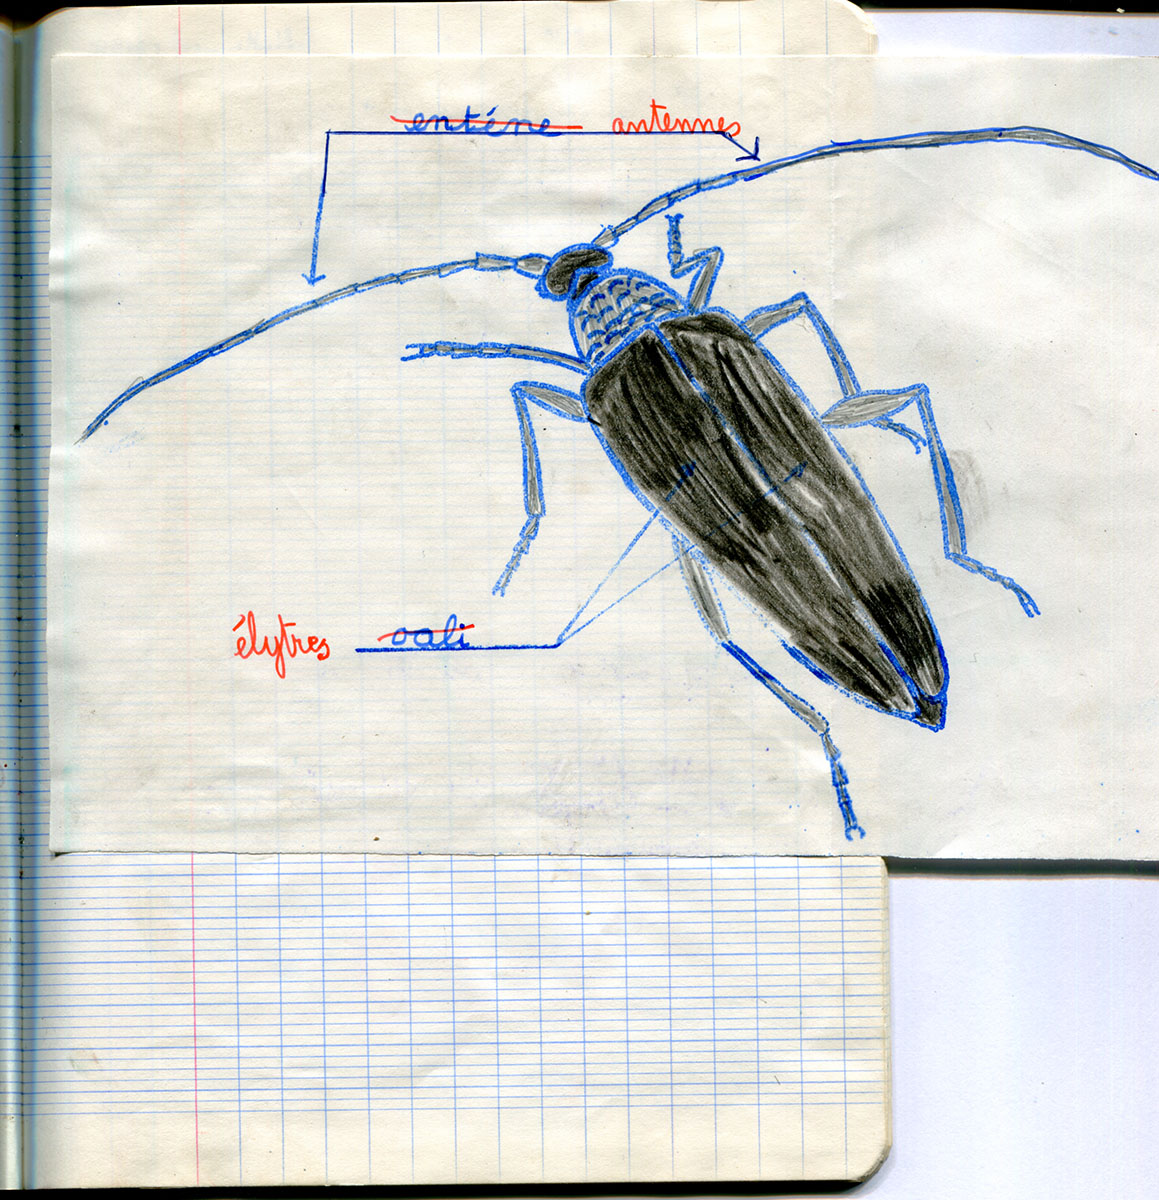 enténe antennes
élytres oali